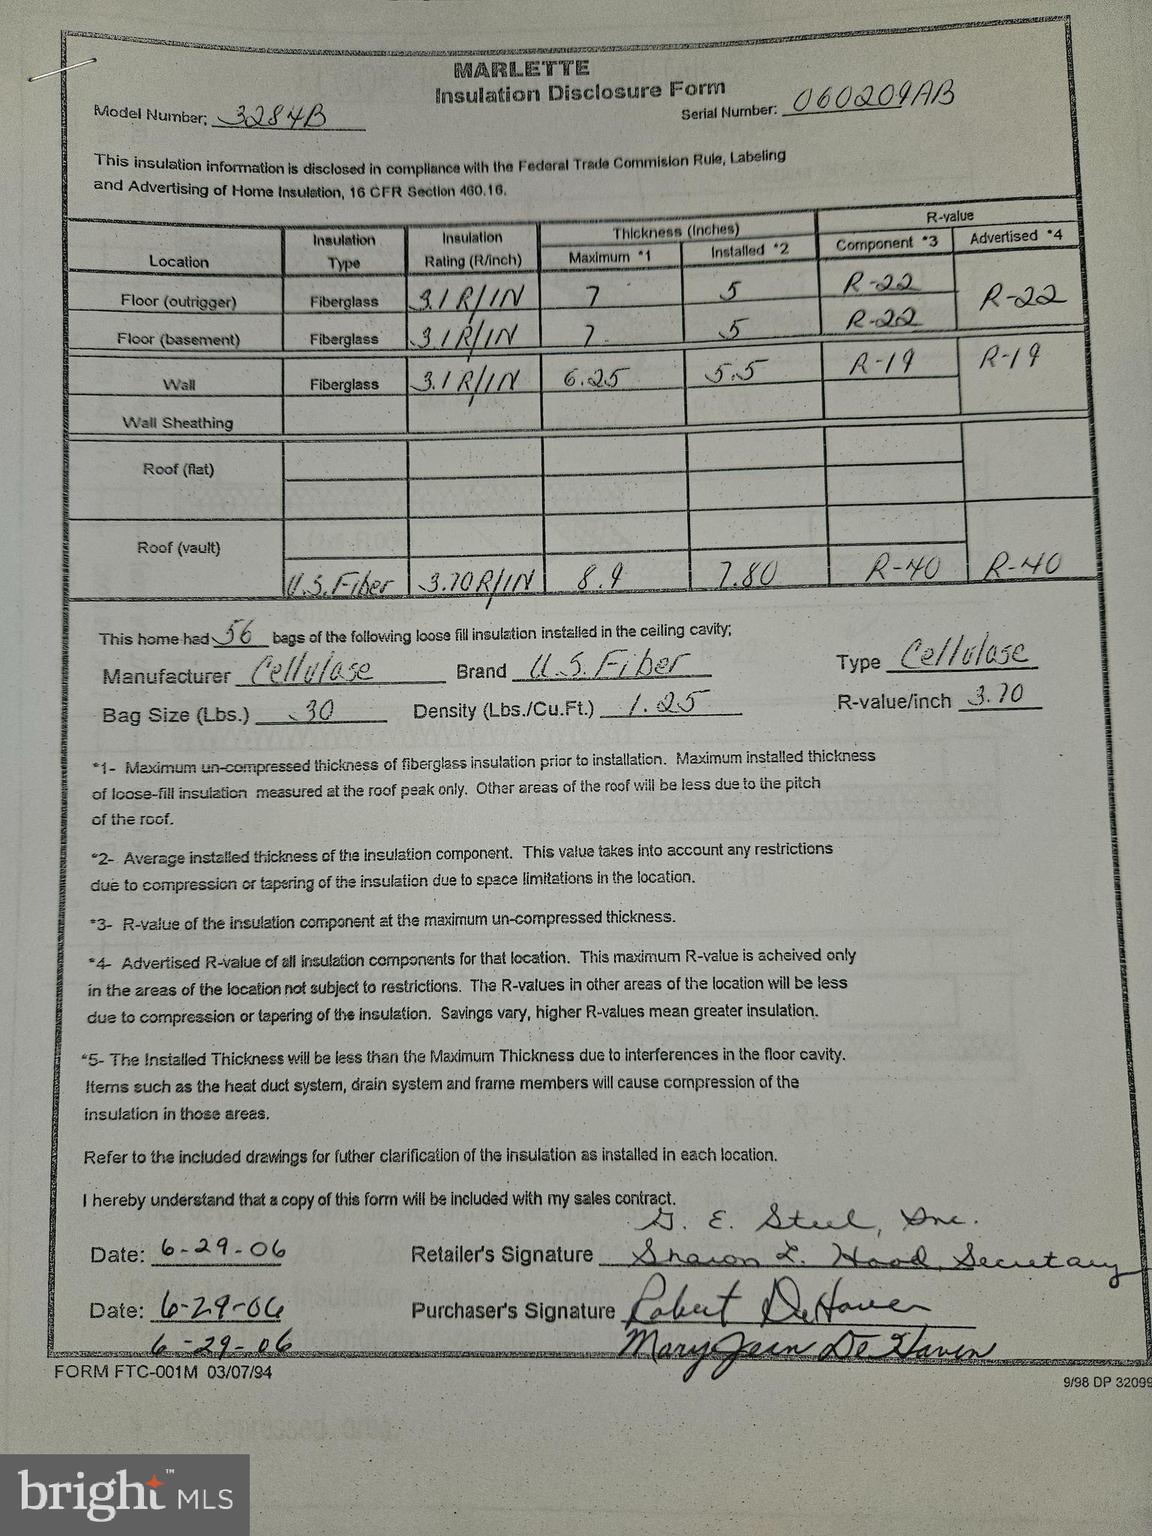 MARLETTE
Insulation Disclosure Form
Model Number: 3284B Serial Number: 060209AB
This insulation information is disclosed in compliance with the Federal Trade Commision Rule, Labeling
and Advertising of Home Insulation, 16 CFR Section 460.16.
Location Insulation Type Insulation Rating (R/inch) Thickness (Inches) Maximum *1 Installed *2 R-value Component *3 Advertised *4
Floor (outrigger) Fiberglass 3.1 R/IN 7 5 R-22 R-22
Floor (basement) Fiberglass 3.1 R/IN 7 5 R-22
Wall Fiberglass 3.1 R/IN 6.25 5.5 R-19 R-19
Wall Sheathing
Roof (flat)
Roof (vault)
U.S. Fiber 3.70 R/IN 8.9 7.80 R-40 R-40
This home had 56 bags of the following loose fill insulation installed in the ceiling cavity;
Manufacturer Cellulase Brand U.S. Fiber Type Cellulose
Bag Size (Lbs.) 30 Density (Lbs./Cu.Ft.) 1.25 R-value/inch 3.70
*1- Maximum un-compressed thickness of fiberglass insulation prior to installation. Maximum installed thickness
of loose-fill insulation measured at the roof peak only. Other areas of the roof will be less due to the pitch
of the roof.
*2- Average installed thickness of the insulation component. This value takes into account any restrictions
due to compression or tapering of the insulation due to space limitations in the location.
*3- R-value of the insulation component at the maximum un-compressed thickness.
*4- Advertised R-value of all insulation components for that location. This maximum R-value is acheived only
in the areas of the location not subject to restrictions. The R-values in other areas of the location will be less
due to compression or tapering of the insulation. Savings vary, higher R-values mean greater insulation.
*5- The Installed Thickness will be less than the Maximum Thickness due to interferences in the floor cavity.
Items such as the heat duct system, drain system and frame members will cause compression of the
insulation in those areas.
Refer to the included drawings for futher clarification of the insulation as installed in each location.
I hereby understand that a copy of this form will be included with my sales contract.
G. E. Steel, Inc.
Date: 6-29-06 Retailer's Signature Sharon L. Hood, Secretary
Date: 6-29-06 Purchaser's Signature Robert DeHaven
6-29-06 Mary Jean DeHaven
FORM FTC-001M 03/07/94 9/98 DP 32099
bright™ MLS